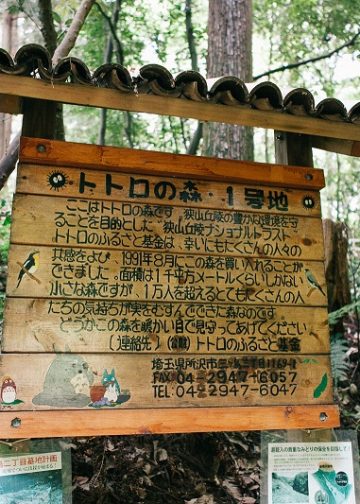 トトロの森・1号地
ここはトトロの森です。狭山丘陵の豊かな環境を守
ることを目的とした 狭山丘陵ナショナルトラスト
トトロのふるさと基金は、幸いにもたくさんの人々の
共感をよび、1991年8月にこの森を買い入れることが
できました。面積は1千平方メートルくらいしかない
小さな森ですが、1万人を超えるとてもたくさんの人
たちの気持ちが実をむすんでできた森なのです
どうかこの森を暖かい目で見守ってあげてください
(連絡先) トトロのふるさと基金
埼玉県所沢市
FAX 04-2947-6057
TEL 04-2947-6047
二丁目墓地計画